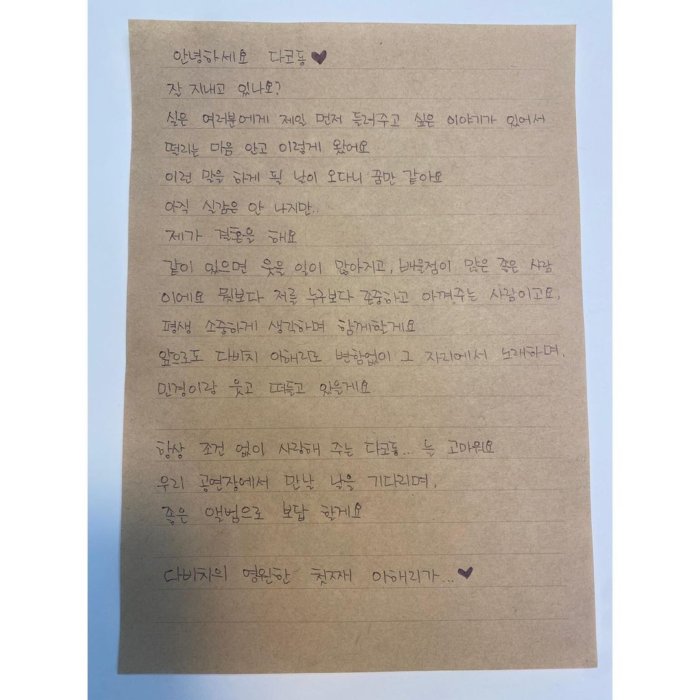 안녕하세요 다코동♥
잘 지내고 있나요?
실은 여러분에게 제일 먼저 들려주고 싶은 이야기가 있어서
떨리는 마음 안고 이렇게 왔어요
이런 말을 하게 될 날이 오다니 꿈만 같아요
아직 실감은 안 나지만..
제가 결혼을 해요
같이 있으면 웃을 일이 많아지고, 배울점이 많은 좋은 사람
이에요 뭣보다 저를 누구보다 존중하고 아껴주는 사람이고요,
평생 소중하게 생각하며 함께할게요
앞으로도 다비치 이해리로 변함없이 그 자리에서 노래하며,
민경이랑 웃고 떠들고 있을게요
항상 조건 없이 사랑해 주는 다코동.. 늘 고마워요
우리 공연장에서 만날 날을 기다리며,
좋은 앨범으로 보답 할게요
다비치의 영원한 첫째 이해리가...♥